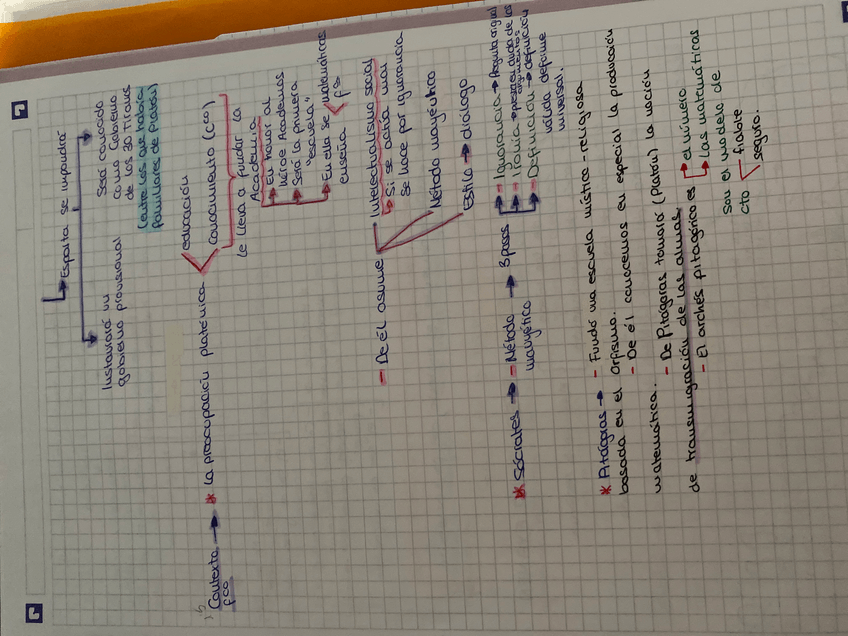 Esparta se impondrá
Instaurará un
gobierno provisional
Será conocido
como Gobierno
de los 30 Tiranos
(entre los que había
familiares de Platón)
Contexto
fco
* La preocupación platónica
educación
conocimiento (cto)
le lleva a fundar la
Academia
En honor al
héroe Academos
Será la primera
"escuela"
En ella se
enseña
matemáticas
fª
- De él asume
Intelectualismo
Si se actúa mal
se hace por ignorancia
Método mayéutico
Estilo → diálogo
* Sócrates → - Método
mayéutico
→ 3 pasos
- Ignorancia →
- Ironía →
- Definición → definición
válida de forma
universal.
* Pitágoras → - Fundó una escuela místico-religiosa
basada en el orfismo.
- De él conocemos en especial la producción
matemática.
- De Pitágoras tomará (Platón) la noción
de transmigración de las almas
- El arché pitagórico es
el número
las matemáticas
son el modelo de
cto
fiable
seguro.